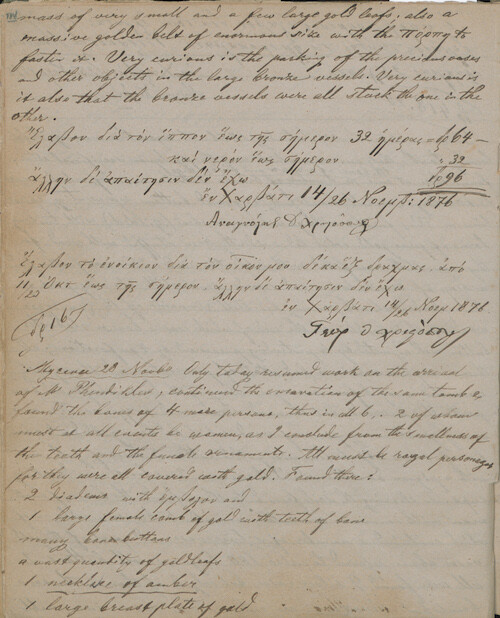 mass of very small and a few large gold leafs; also a
massive golden belt of enormous size with the πόρπη to
fasten it. Very curious is the packing of the precious ones
and other objects in the large bronze vessels. Very curious is
it also that the bronze vessels were all stuck the one in the
other.
Ἔλαβον διὰ τὸν ἵππον ἕως τῆς σήμερον 32 ἡμέρας δρ 64 –
καὶ νερόν ἕως σήμερον " 32
ἄλλην δὲ ἀπαίτησιν δὲν ἔχω δρ 96
ἐν Χαρβάτι 14/26 Νοεμβ: 1876
Ἔλαβον τὸ ἐνοίκιον διὰ τὸν οἶκον μου δέκα ἓξ δραχμας, ἀπὸ
11/23 Ὀκτ ἕως τῆς σήμερον. ἄλλην δὲ ἀπαίτησιν δὲν ἔχω
δρ 16
ἐν Χαρβάτι 14/26 Νοεμ 1876
Mycenae 28 Novbr. Only today resumed work on the arrival
of M. Phendikles; continued the excavation of the same tomb &
found the bones of 4 more persons, thus in all 6, 2 of whom
must at all events be women, as I conclude from the smallness of
the teeth and the female ornaments. All must be royal personages
for they were all covered with gold. Found there:
2 diadems with ἔμβολον and
1 large female comb of gold with teeth of bone
many bone buttons
a vast quantity of goldleafs
1 necklace of amber
1 large breast plate of gold